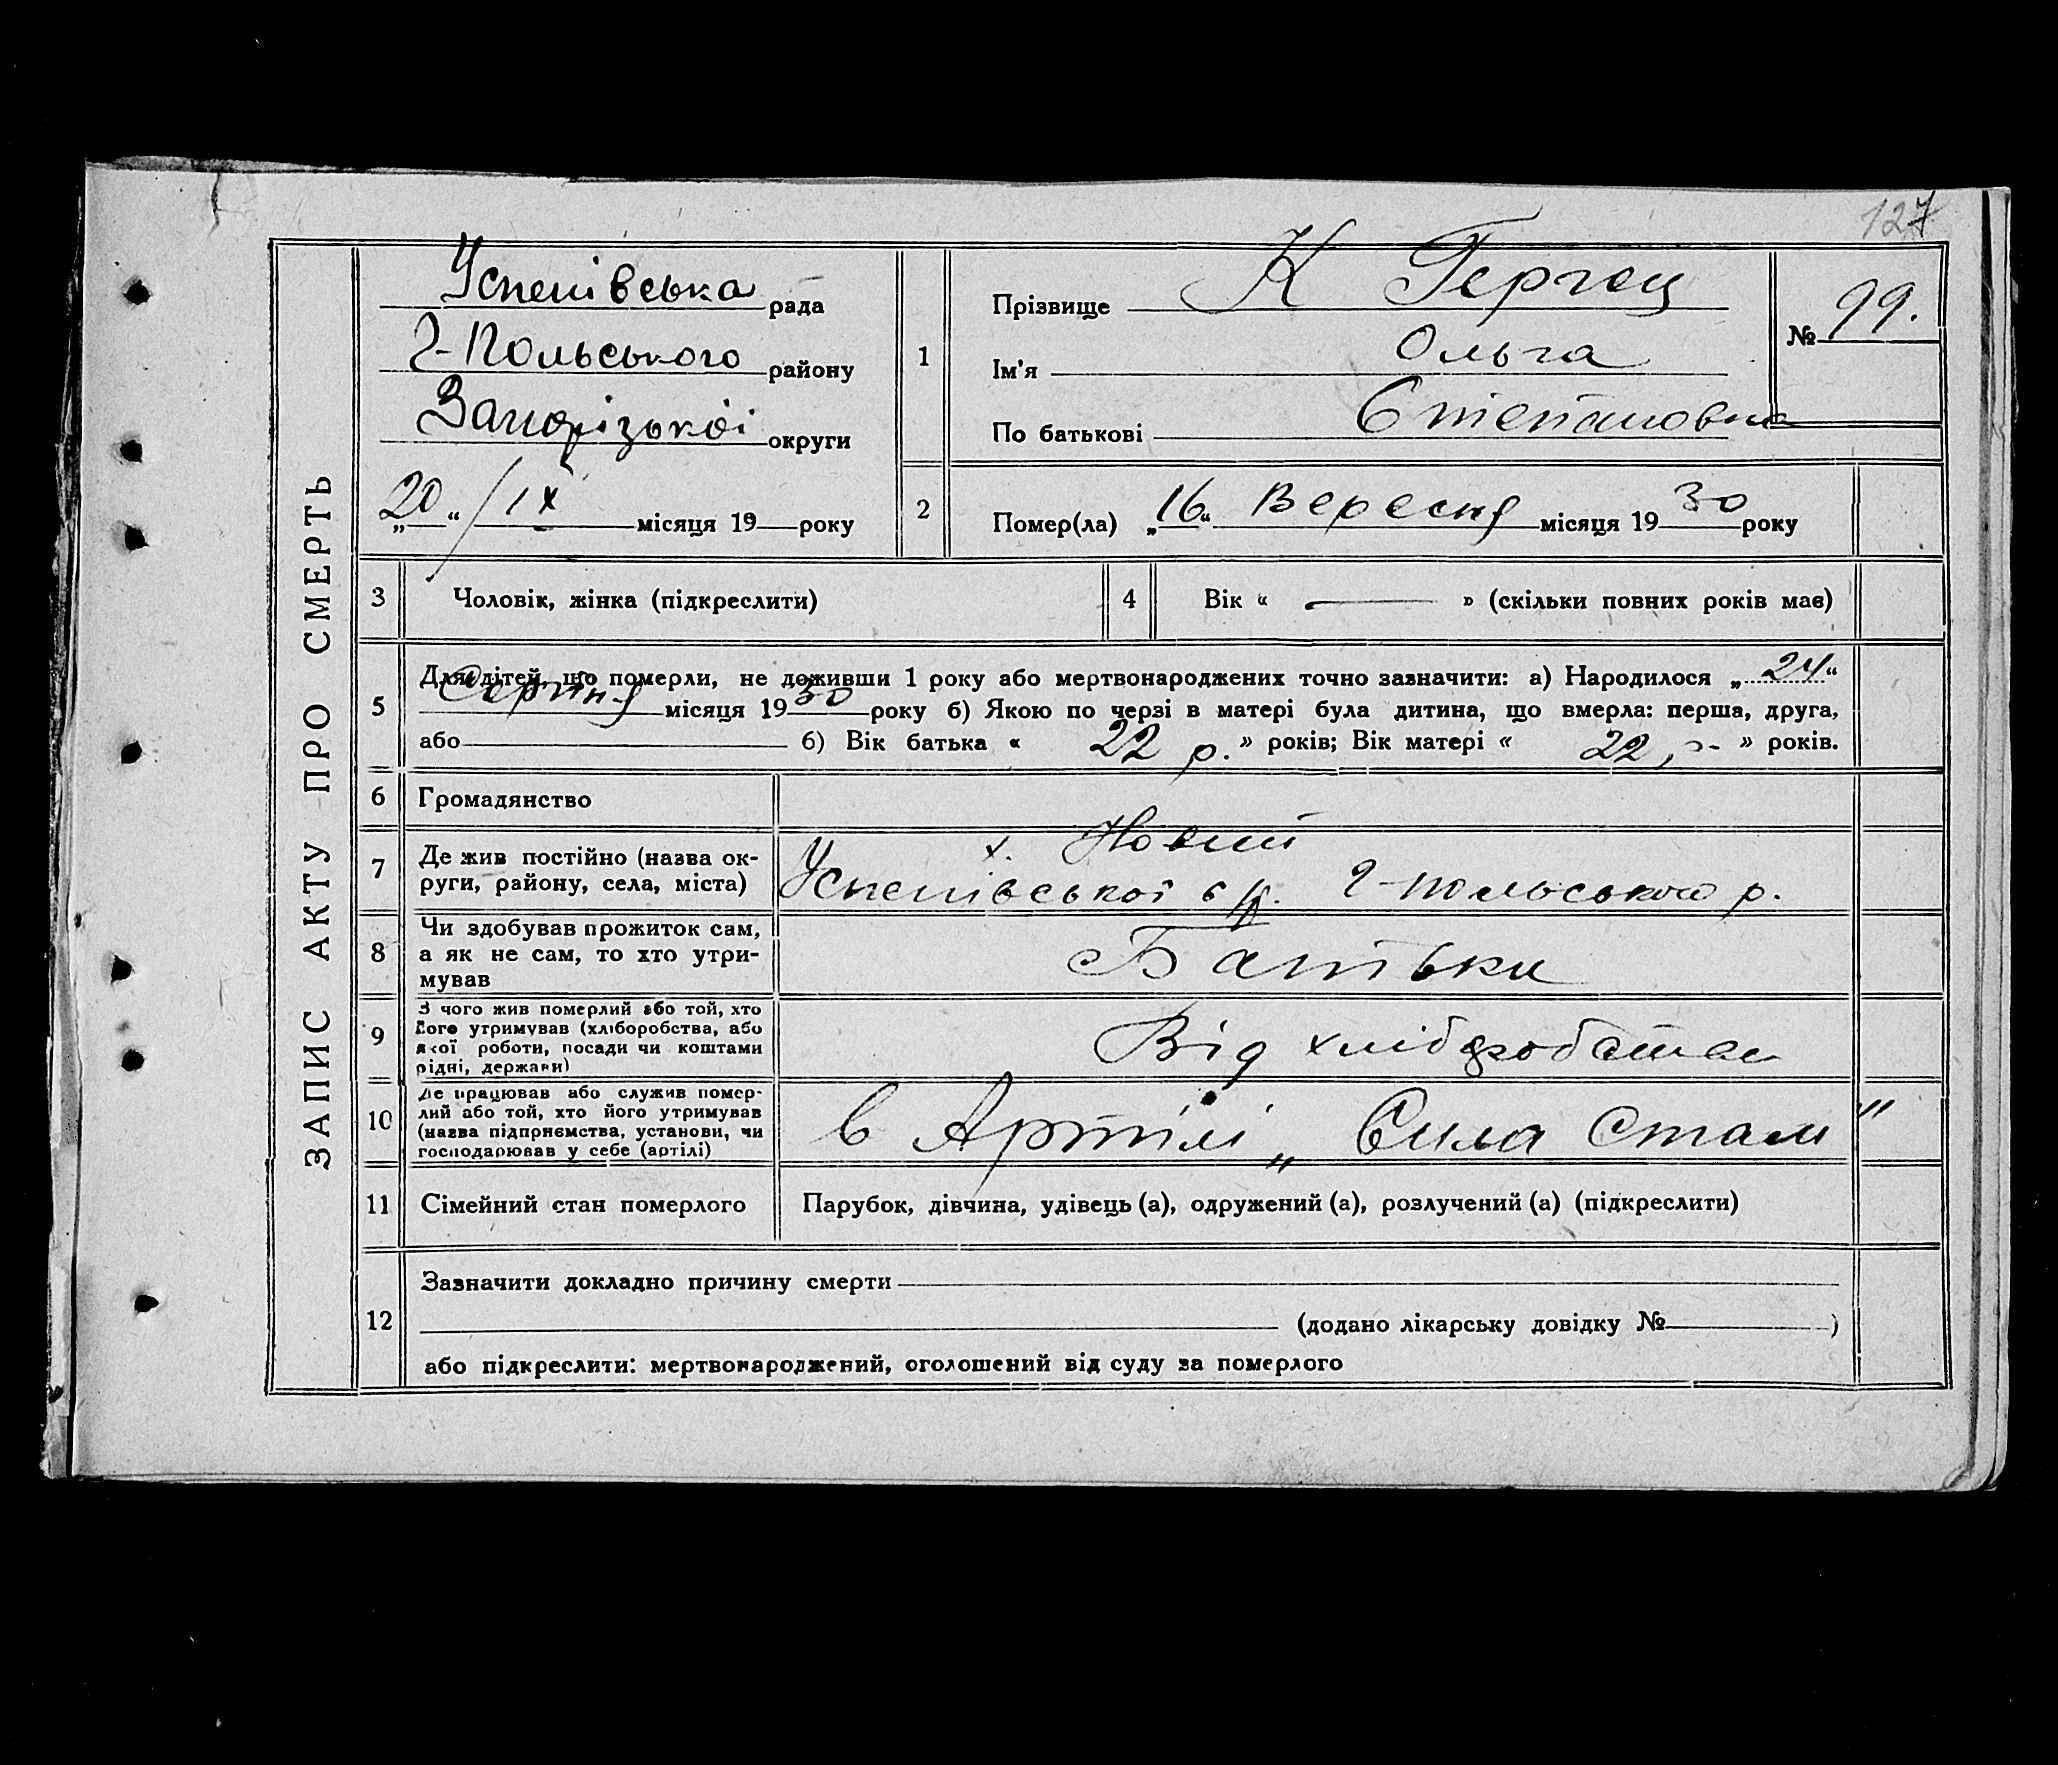 127
ЗАПИС АКТУ ПРО СМЕРТЬ
Успенівська рада
Г-Польського району
Запорізької округи
„20“ /IX місяця 19 року
1
Прізвище К Гергец
Ім'я Ольга
По батькові Степановна
№ 99.
2
Помер(ла) „16“ Вересня місяця 1930 року
3 Чоловік, жінка (підкреслити)
4 Вік « — » (скільки повних років має)
5
Для дітей, що померли, не доживши 1 року або мертвонароджених точно зазначити: а) Народилося „24“
Серпня місяця 1930 року б) Якою по черзі в матері була дитина, що вмерла: перша, друга,
або б) Вік батька « 22 р. » років; Вік матері « 22 р. » років.
6 Громадянство
7
Де жив постійно (назва ок-
руги, району, села, міста)
х. Новий
Успенівської с/р. Г-Польського р.
8
Чи здобував прожиток сам,
а як не сам, то хто утри-
мував
Батьки
9
З чого жив померлий або той, хто
його утримував (хліборобства, або
якої роботи, посади чи коштами
рідні, держави)
Від хліборобства
10
Де працював або служив помер-
лий або той, хто його утримував
(назва підприємства, установи, чи
господарював у себе (артілі)
в Артілі „Сила Стали"
11 Сімейний стан померлого
Парубок, дівчина, удівець (а), одружений (а), розлучений (а) (підкреслити)
12
Зазначити докладно причину смерти
(додано лікарську довідку № )
або підкреслити: мертвонароджений, оголошений від суду за померлого